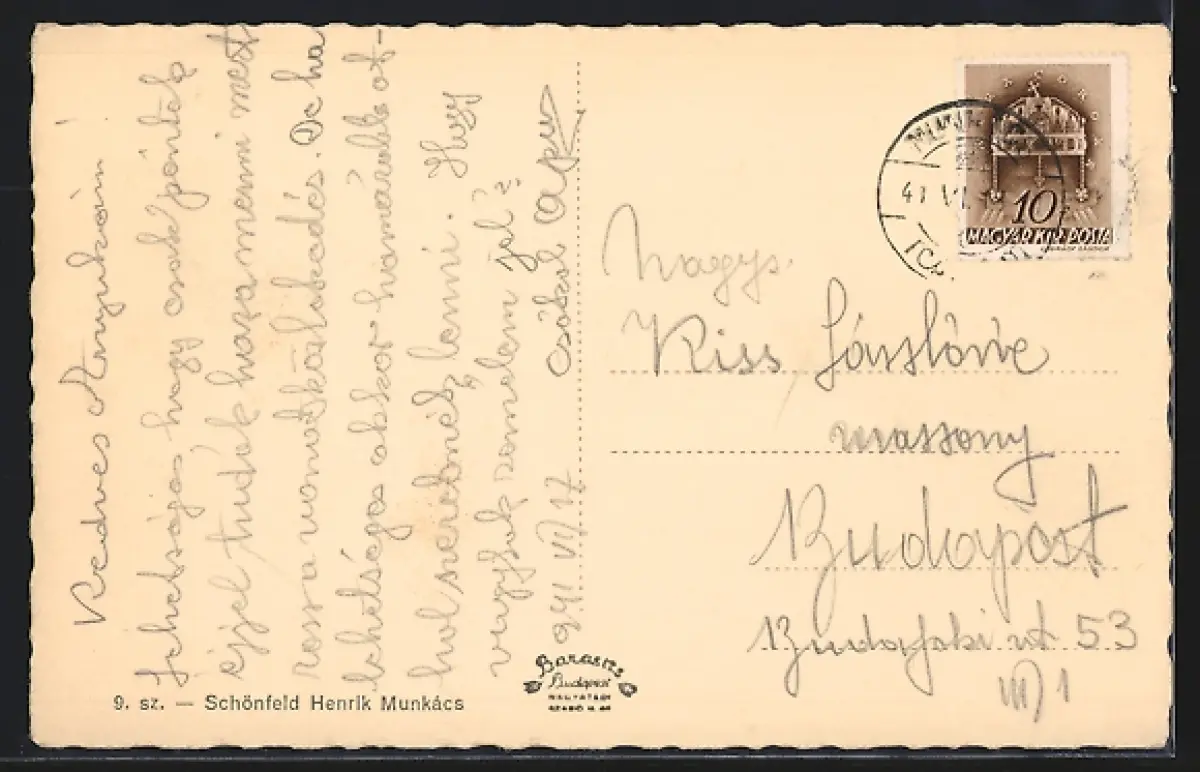 Kedves Anyukám!
Lehetséges hogy csak péntek
éjjel tudok hazamenni mert
rossz a vonatközlekedés. De ha
lehetséges akkor hamarább ot-
hol szeretnék lenni. Hogy
vagytok remélem jól?
Csókol Apu
941 VI 17
Nagys.
Kiss Lászlóné
urasszony
Budapest
Budafoki út 53
III/1
10f
MAGYAR KIR. POSTA
41 VI
9. sz. — Schönfeld Henrik Munkács
Barasits
Budapest
NAGYATÁDI
SZABÓ U.